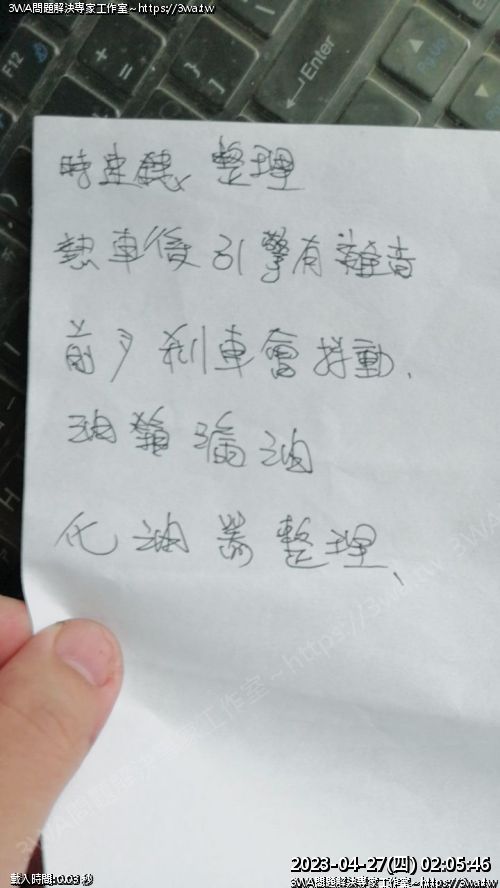 3WA問題解決專家工作室~https://3wa.tw
3WA問題解決專家工作室~https://3wa.tw
F12
+
=
}
]
Enter
PgUp
PgDn
整理
熱車後引擎有雜音
前 剎車會抖動、
油箱漏油
化油器整理、
3WA問題解決專家工作室~https://3wa.tw
H
N
2023-04-27(四) 02:05:46
載入時間:0.03 秒
3WA問題解決專家工作室~https://3wa.tw